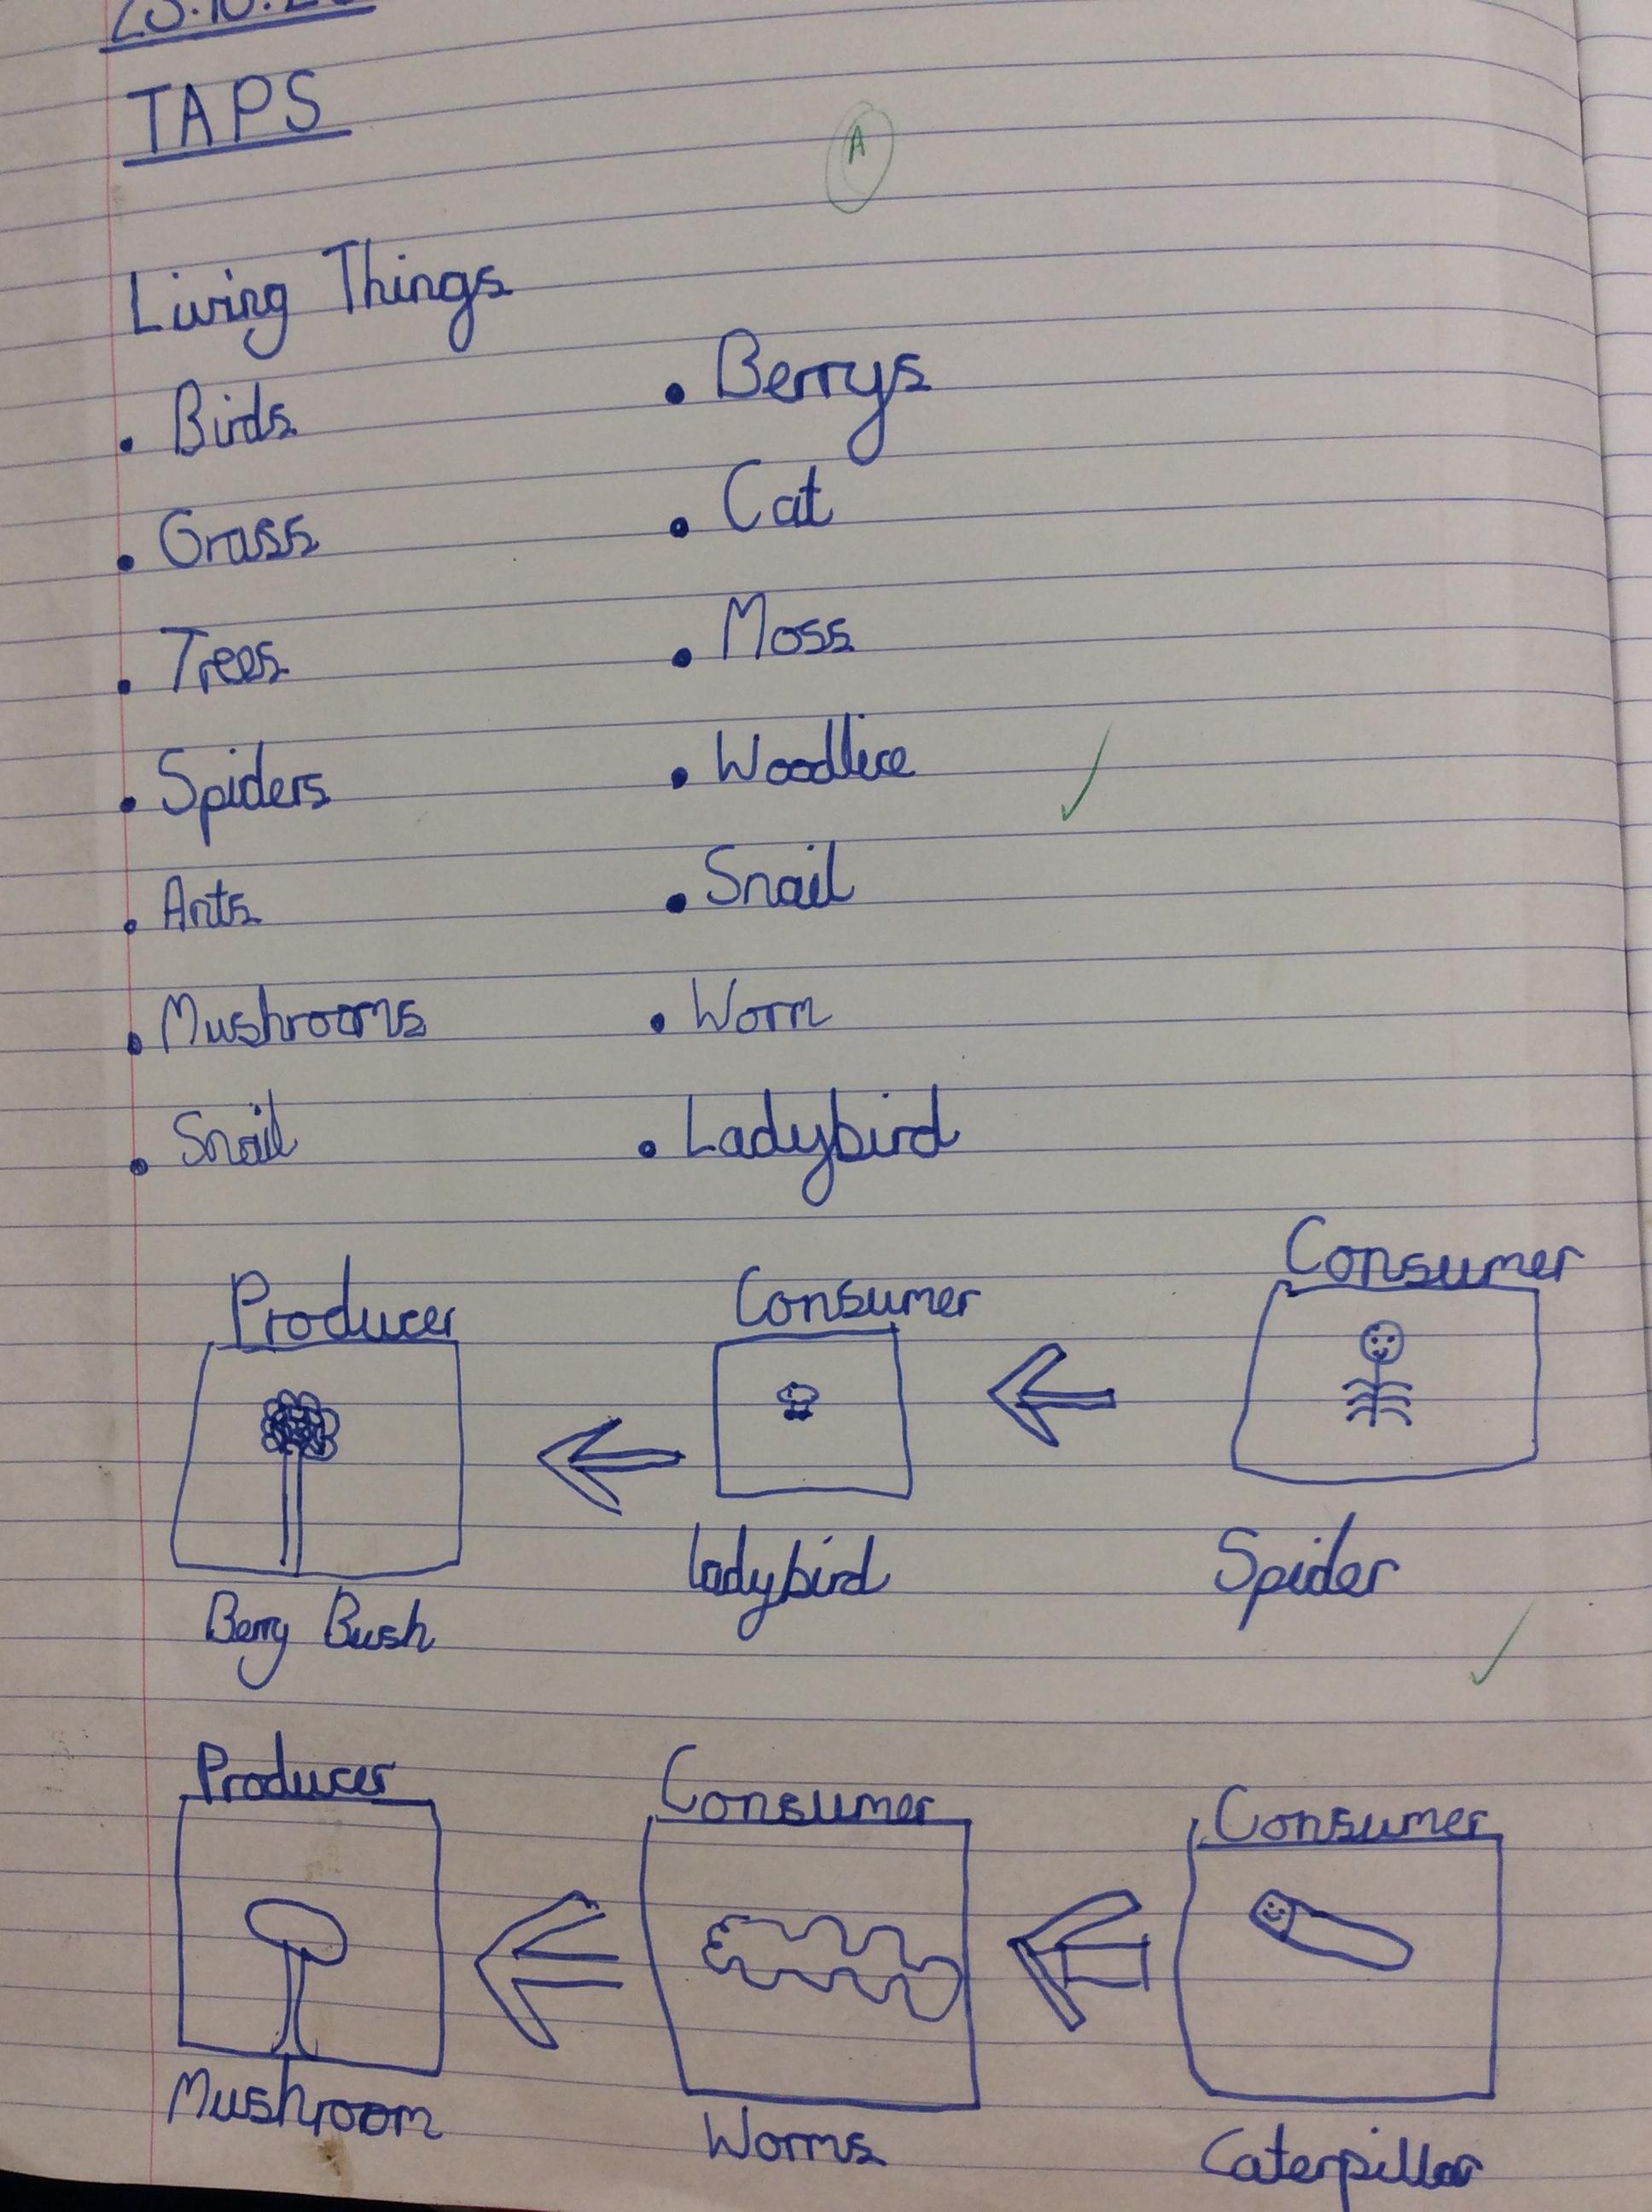 TAPS
A
Living Things
• Birds
• Grass
• Trees
• Spiders
• Ants
• Mushrooms
• Snail
• Berrys
• Cat
• Moss
• Woodlice
• Snail
• Worm
• Ladybird
Producer
Consumer
Consumer
Berry Bush
Ladybird
Spider
Producer
Consumer
Consumer
Mushroom
Worms
Caterpillar